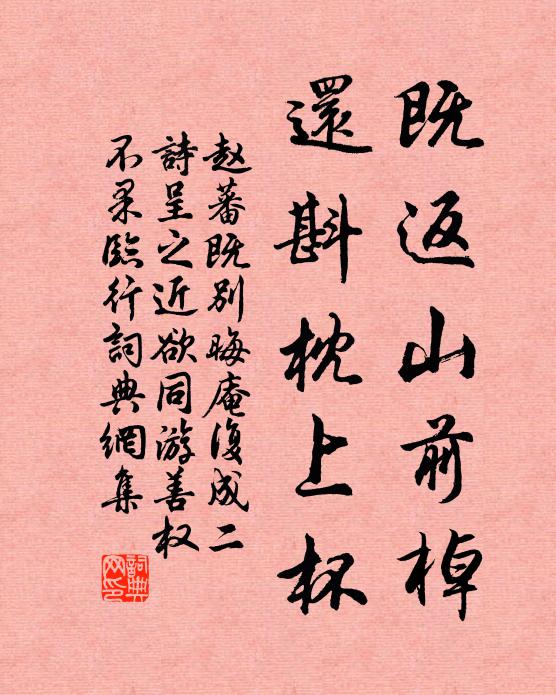 既返山前棹
還斟枕上杯
赵蕃既别晦庵復成二
詩呈之近欲同游善权
不果臨行詞典網集
詞典网印